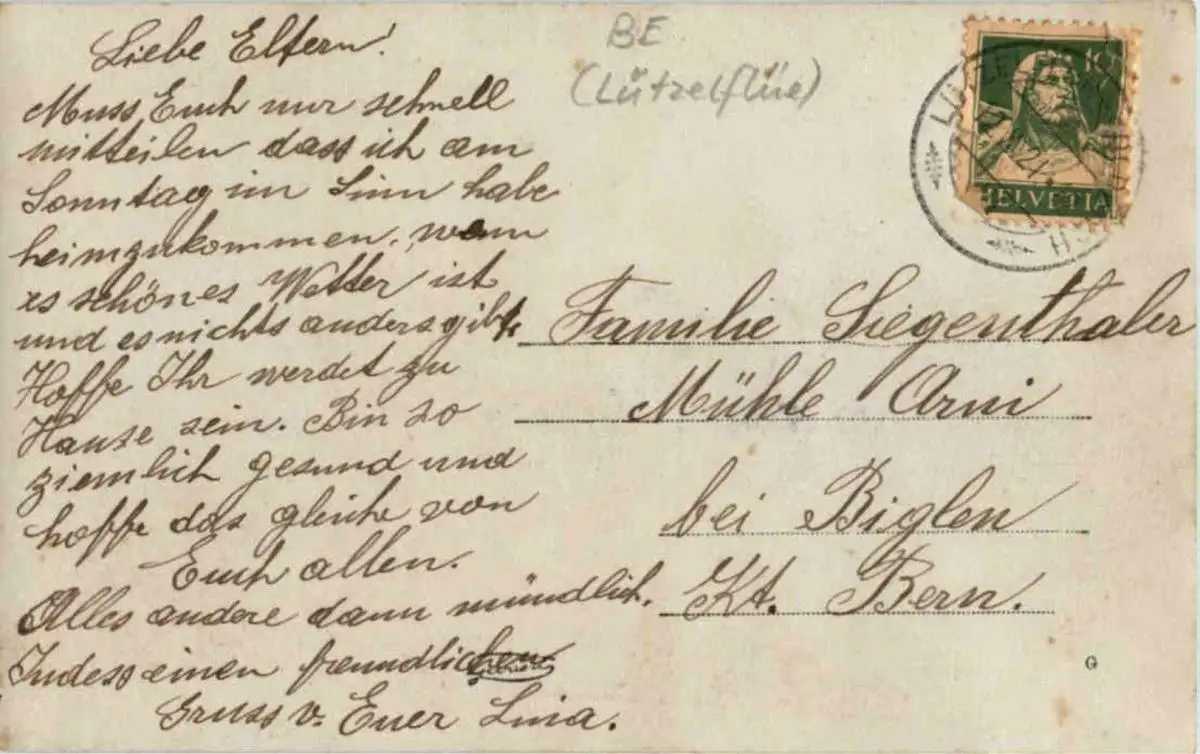 Liebe Eltern!
Muss Euch nur schnell
mitteilen dass ich am
Sonntag im Sinn habe
heimzukommen. wenn
es schönes Wetter ist
und es nichts anders gibt.
Hoffe Ihr werdet zu
Hause sein. Bin so
ziemlich gesund und
hoffe das gleiche von
Euch allen.
Alles andere dann mündlich.
Indess einen freundlichen
Gruss v. Euer Lina.
BE
(Lützelflüe)
10
HELVETIA
Familie Siegenthaler
Mühle Arni
bei Biglen
Kt. Bern.
G